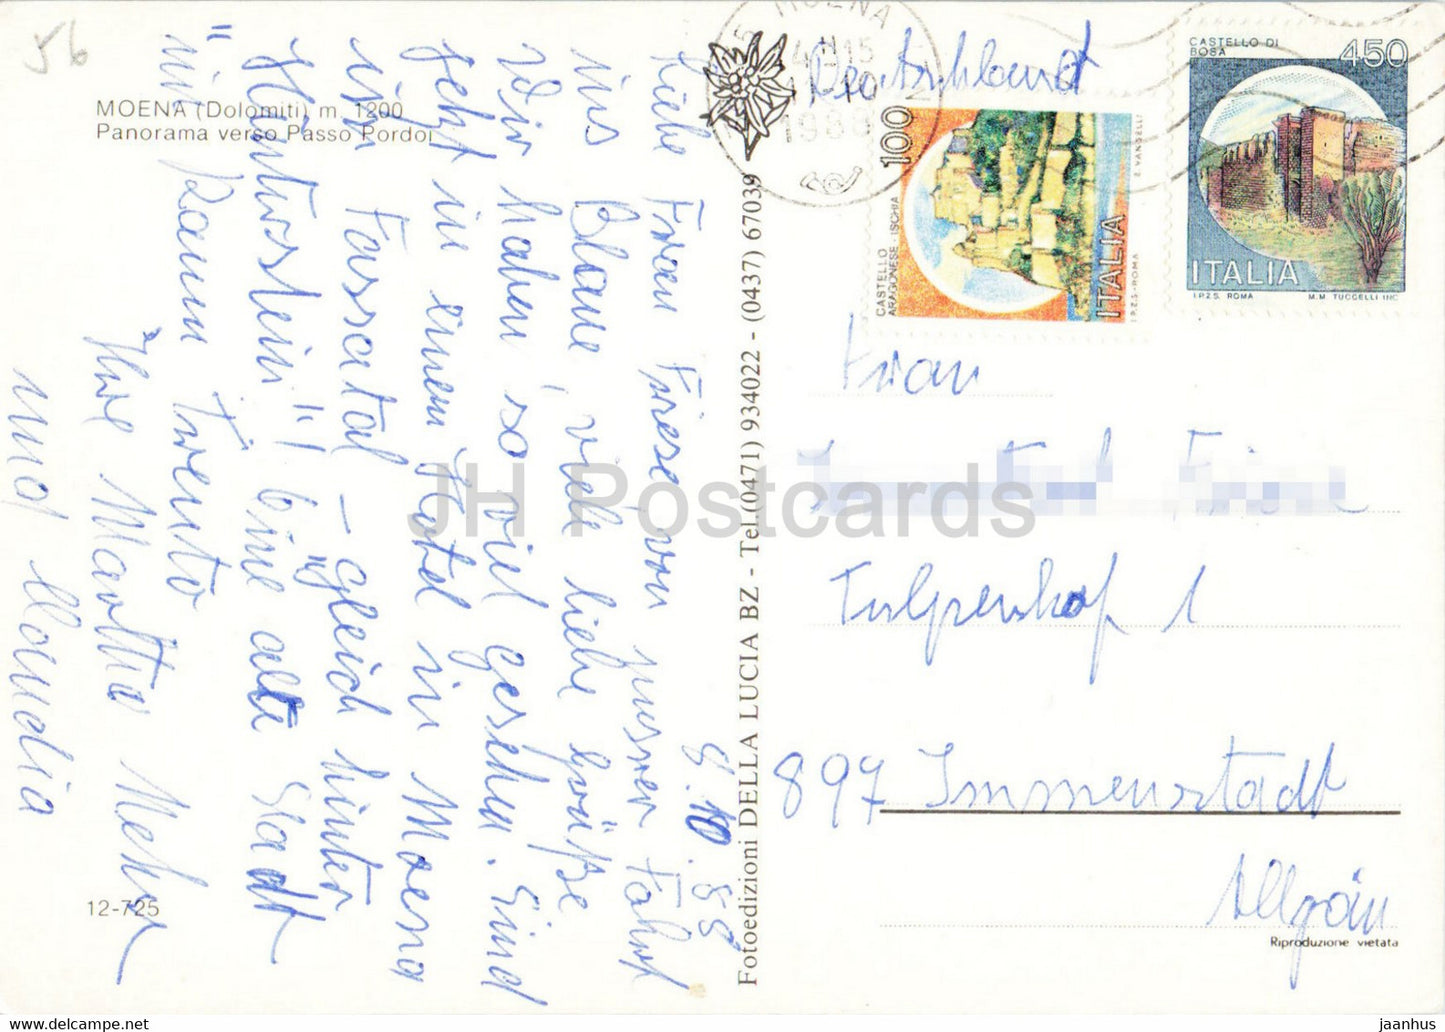 56
MOENA (Dolomiti) m. 1200
Panorama verso Passo Pordoi
8.10.88
Liebe Frau Friese, von unserer Fahrt
ins Blaue, viele liebe Grüße
Wir haben so viel gesehen. Sind
jetzt in einem Hotel in Moena
im Fassatal – gleich hinter
"Hintersten"! Eine alte Stadt
im Raum Trento
Ihre Martha
und Claudia
12-725
Fotoedizioni DELLA LUCIA BZ - Tel. (0471) 934022 - (0437) 67039
MOENA
1988
Deutschland
CASTELLO ARAGONESE ISCHIA
100
ITALIA
I.P.Z.S. - ROMA
E. VANGELLI
CASTELLO DI BOSA
450
ITALIA
I.P.Z.S. ROMA
M.M. TUCCELLI INC.
Frau
Tulpenhof 1
897 Immenstadt
Allgäu
Riproduzione vietata
JH Postcards
www.delcampe.net
jaanhus